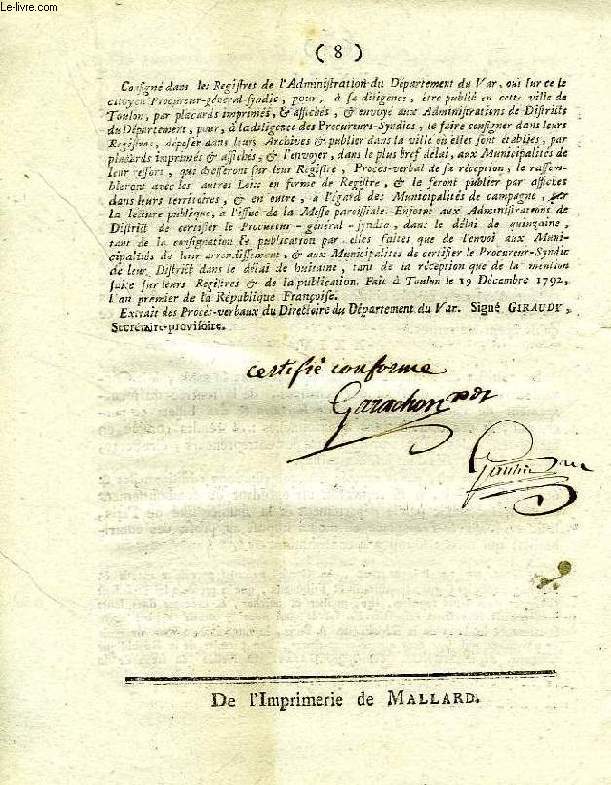 Le-livre.com
( 8 )
Consigné dans les Registres de l'Administration du Département du Var, oui sur ce le
citoyen Procureur-général-syndic, pour, à sa diligence, être publié en cette ville de
Toulon, par placards imprimés, & affichés, & envoyé aux Administrations de Districts
du Département, pour, à la diligence des Procureurs-Syndics, le faire consigner dans leurs
Registres, déposer dans leurs Archives & publier dans la ville où elles sont établies, par
placards imprimés & affichés, & l'envoyer, dans le plus bref délai, aux Municipalités de
leur ressort, qui dresseront sur leur Registre, Procès-verbal de sa réception, le rassem-
bleront avec les autres Loix en forme de Registre, & le feront publier par affiches
dans leurs territoires, & en outre, à l'égard des Municipalités de campagne, par
la lecture publique, à l'issue de la Messe paroissiale. Enjoint aux Administrations de
District de certifier le Procureur-général-syndic, dans le délai de quinzaine,
tant de la consignation & publication par elles faites que de l'envoi aux Muni-
cipalités de leur arrondissement, & aux Municipalités de certifier le Procureur-Syndic
de leur District dans le délai de huitaine, tant de la réception que de la mention
faite sur leurs Registres & de la publication. Fait à Toulon le 19 Décembre 1792,
l'an premier de la République Françoise.
Extrait des Procès-verbaux du Directoire du Département du Var. Signé GIRAUDY,
Secrétaire-provisoire.
certifié conforme
Garachon
De l'Imprimerie de MALLARD.